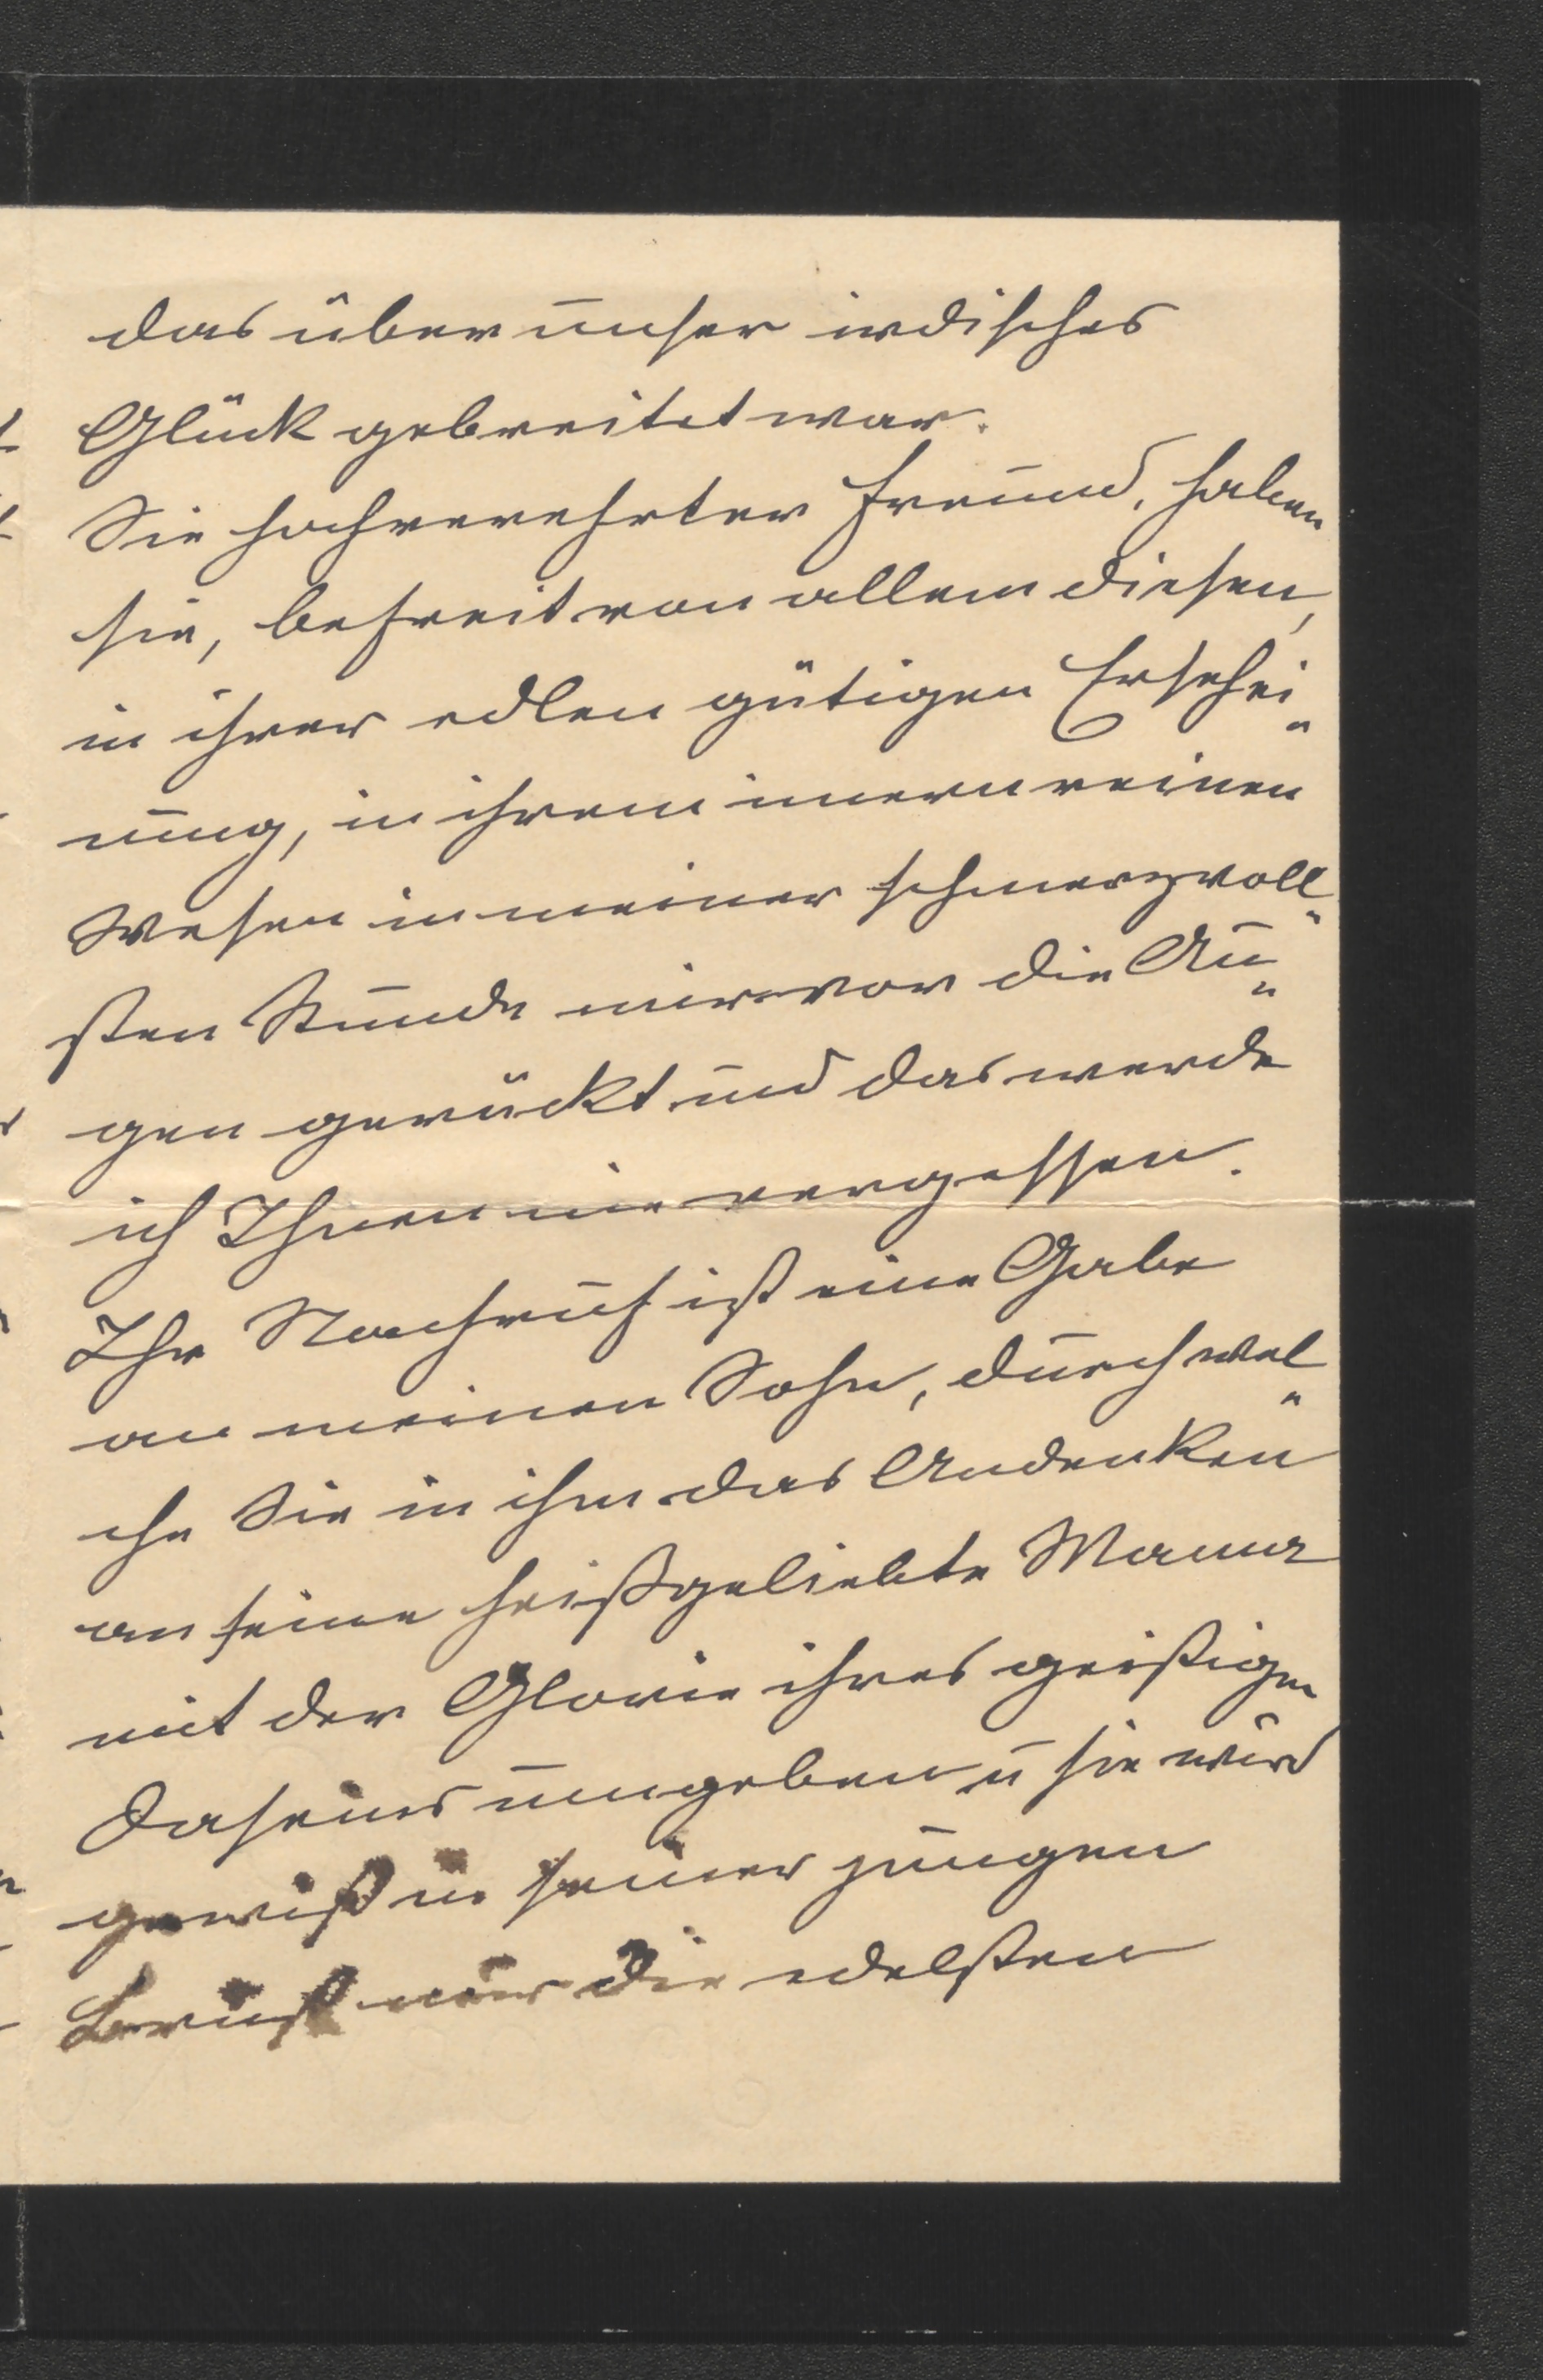 das über unser irdisches
Glück gebreitet war.
Sie hochverehrter Freund, haben
sie, befreit von allem diesen,
in ihrer edlen gütigen Erschei-
nung, in ihrem innern reinen
Wesen in meiner schmerzvoll-
sten Stunde mir vor die Au-
gen gerückt und das werde
ich Ihnen nie vergessen.
Ihr Nachruf ist eine Gabe
an meinen Sohn, durch wel-
che Sie in ihm das Andenken
an seine heißgeliebte Mama
mit der Glorie ihres geistigen
Daseins umgeben u sie wird
gewiß in seiner jungen
Brust nur die edelsten